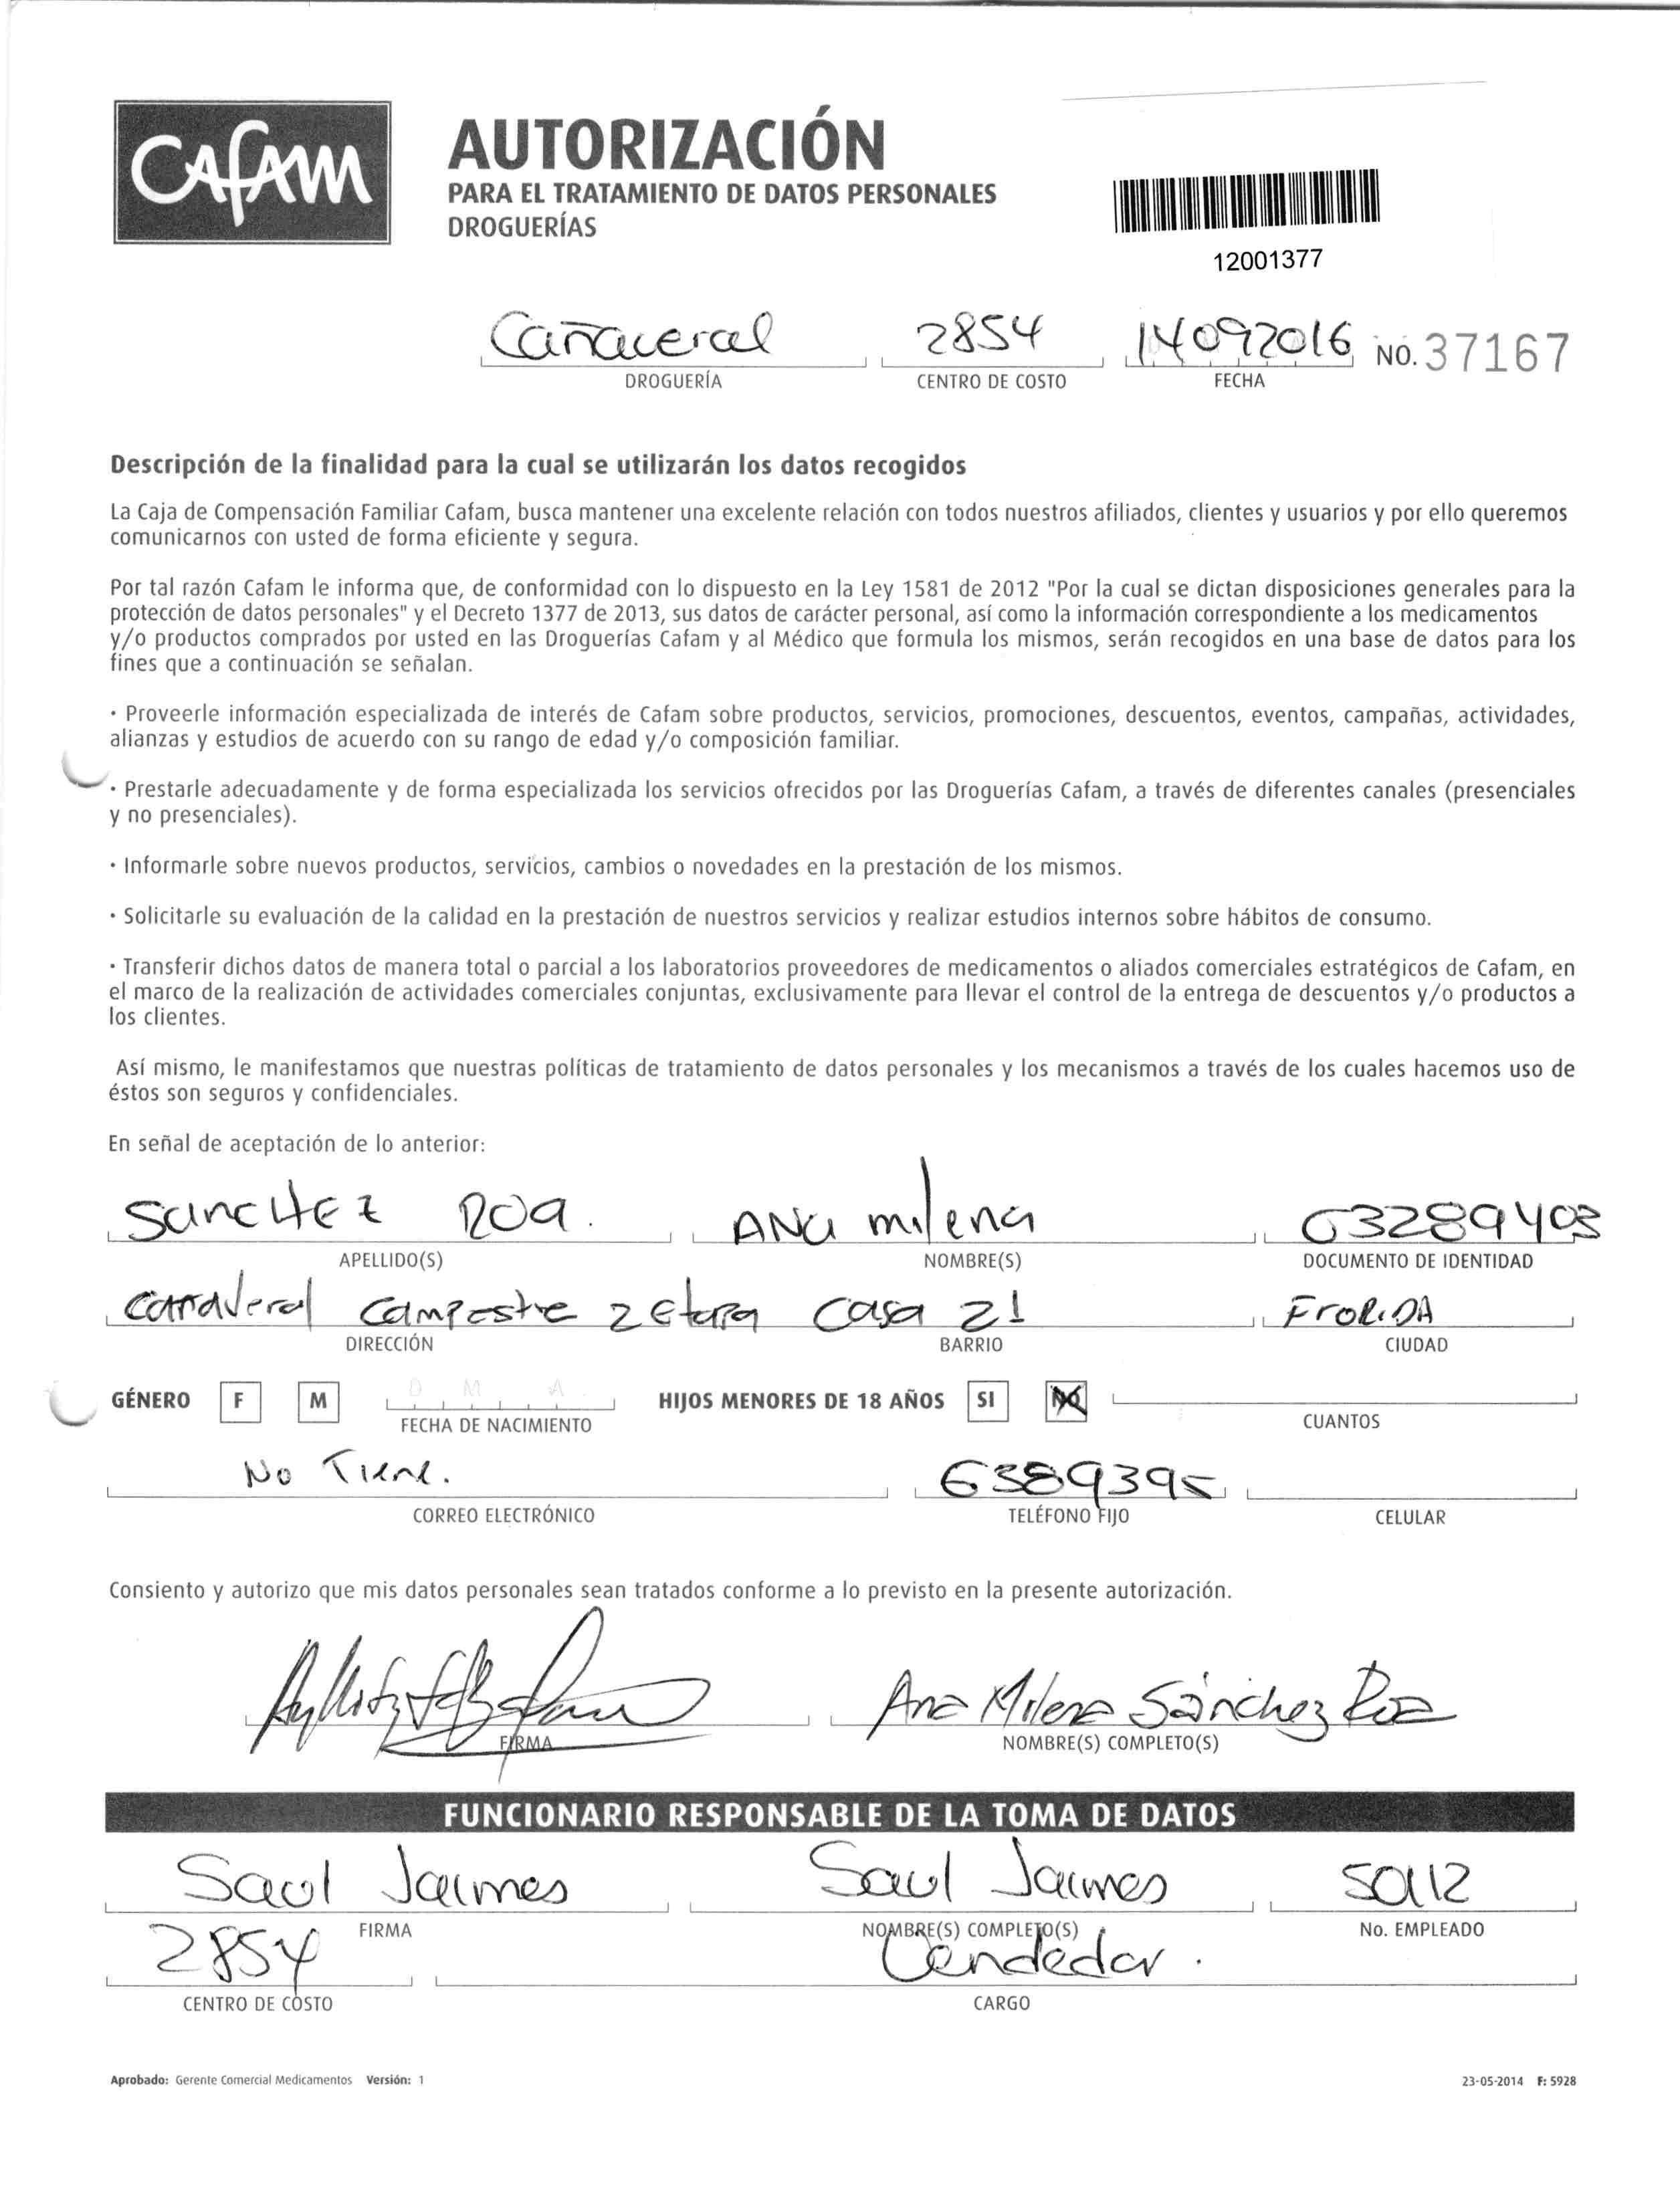 CAFAM
AUTORIZACIÓN
PARA EL TRATAMIENTO DE DATOS PERSONALES
DROGUERÍAS
12001377
Cañaveral 2854 14092016 NO. 37167
DROGUERÍA CENTRO DE COSTO FECHA
Descripción de la finalidad para la cual se utilizarán los datos recogidos
La Caja de Compensación Familiar Cafam, busca mantener una excelente relación con todos nuestros afiliados, clientes y usuarios y por ello queremos
comunicarnos con usted de forma eficiente y segura.
Por tal razón Cafam le informa que, de conformidad con lo dispuesto en la Ley 1581 de 2012 "Por la cual se dictan disposiciones generales para la
protección de datos personales" y el Decreto 1377 de 2013, sus datos de carácter personal, así como la información correspondiente a los medicamentos
y/o productos comprados por usted en las Droguerías Cafam y al Médico que formula los mismos, serán recogidos en una base de datos para los
fines que a continuación se señalan.
· Proveerle información especializada de interés de Cafam sobre productos, servicios, promociones, descuentos, eventos, campañas, actividades,
alianzas y estudios de acuerdo con su rango de edad y/o composición familiar.
· Prestarle adecuadamente y de forma especializada los servicios ofrecidos por las Droguerías Cafam, a través de diferentes canales (presenciales
y no presenciales).
· Informarle sobre nuevos productos, servicios, cambios o novedades en la prestación de los mismos.
· Solicitarle su evaluación de la calidad en la prestación de nuestros servicios y realizar estudios internos sobre hábitos de consumo.
· Transferir dichos datos de manera total o parcial a los laboratorios proveedores de medicamentos o aliados comerciales estratégicos de Cafam, en
el marco de la realización de actividades comerciales conjuntas, exclusivamente para llevar el control de la entrega de descuentos y/o productos a
los clientes.
Así mismo, le manifestamos que nuestras políticas de tratamiento de datos personales y los mecanismos a través de los cuales hacemos uso de
éstos son seguros y confidenciales.
En señal de aceptación de lo anterior:
SancHEz ROa. ANa milena 63289403
APELLIDO(S) NOMBRE(S) DOCUMENTO DE IDENTIDAD
campestre 2 Etapa casa 21
DIRECCIÓN BARRIO CIUDAD
GÉNERO F M D M A HIJOS MENORES DE 18 AÑOS SI NO
FECHA DE NACIMIENTO CUANTOS
No Tiene. 6389395
CORREO ELECTRÓNICO TELÉFONO FIJO CELULAR
Consiento y autorizo que mis datos personales sean tratados conforme a lo previsto en la presente autorización.
Ana Milena Sánchez Roa
FIRMA NOMBRE(S) COMPLETO(S)
FUNCIONARIO RESPONSABLE DE LA TOMA DE DATOS
Saul Jaimes Saul Jaimes
FIRMA NOMBRE(S) COMPLETO(S) No. EMPLEADO
2854 Vendedor.
CENTRO DE COSTO CARGO
Aprobado: Gerente Comercial Medicamentos Versión: 1 23-05-2014 F: 5928